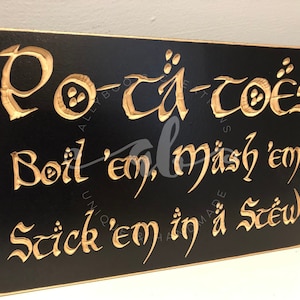 Po-tä-toës
Boil 'em, Mash 'em
Stick 'em in ä Stew